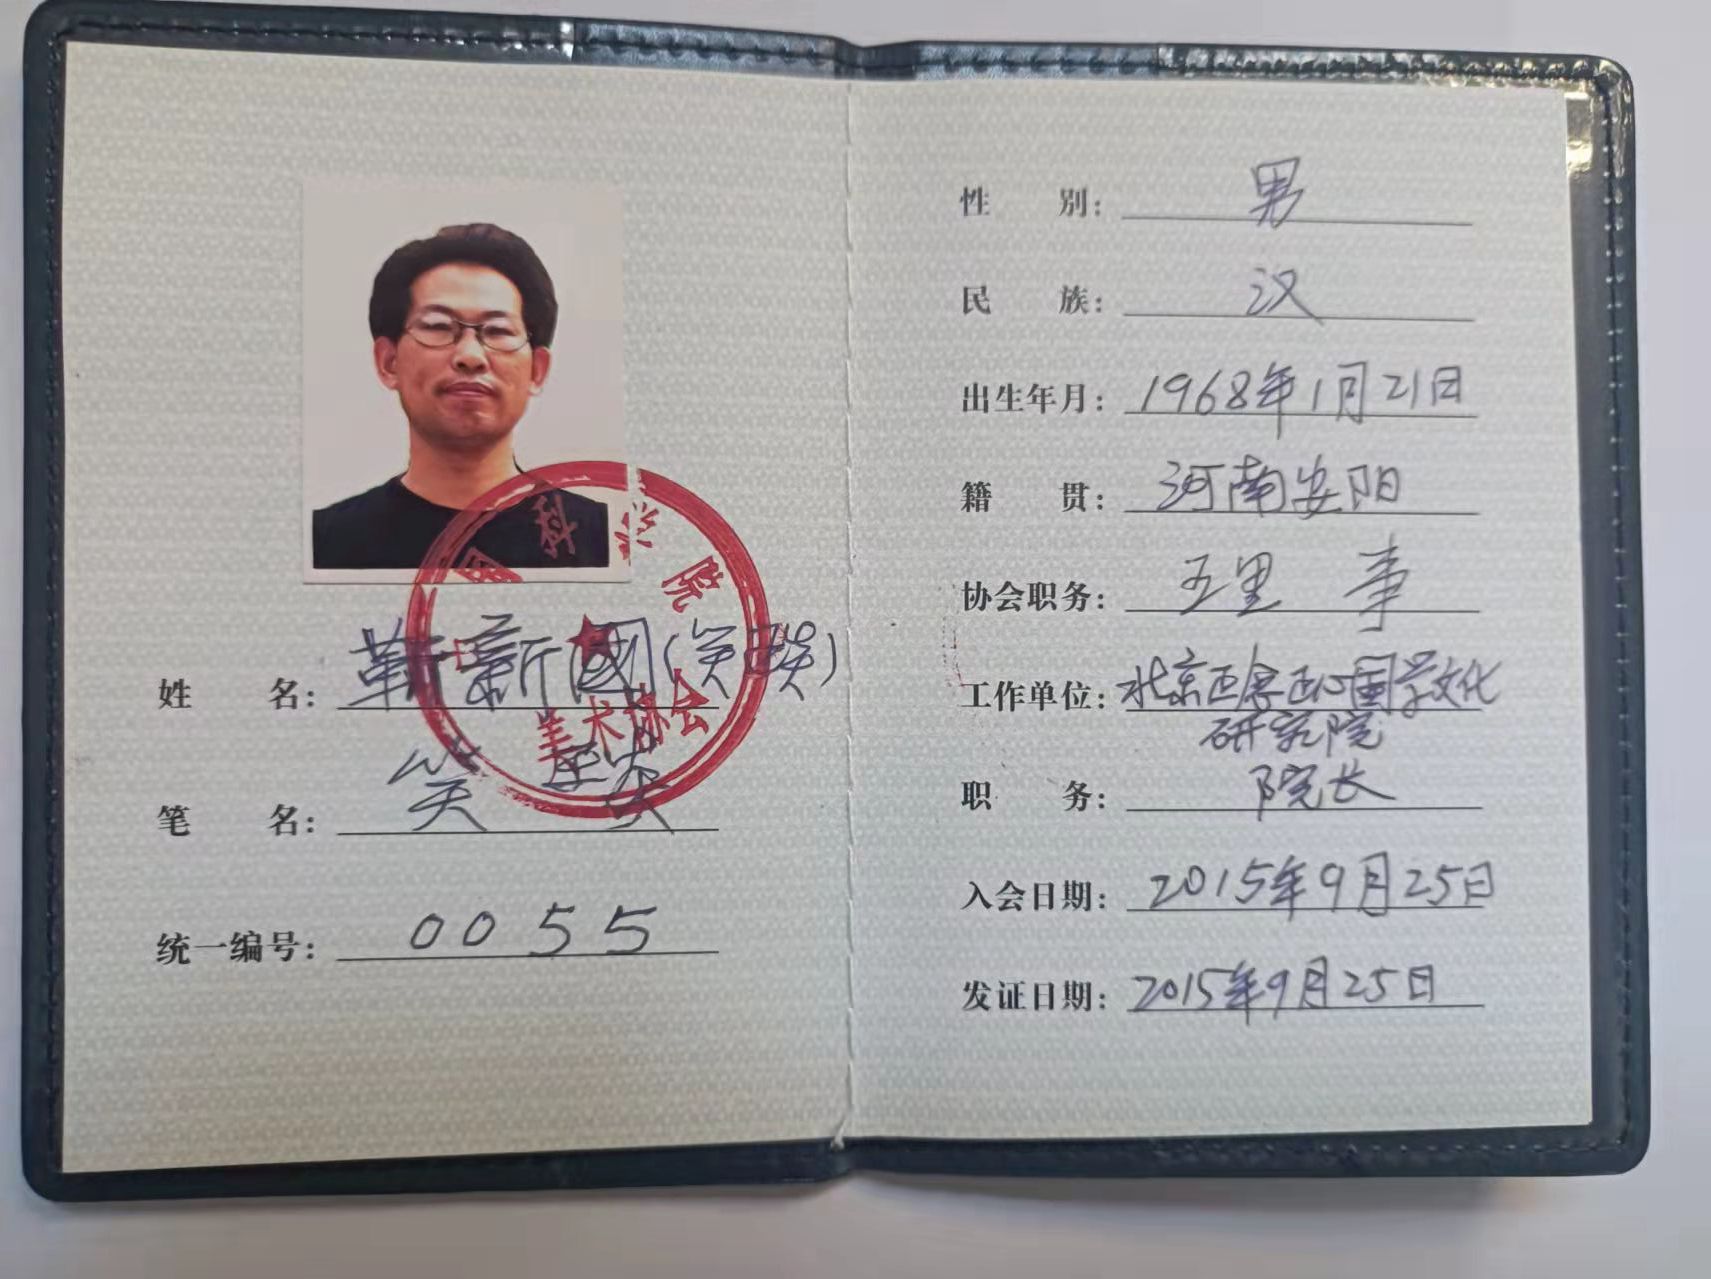 中国科学院
美术协会
姓 名: 靳新國(笑琰)
笔 名: 笑 琰
统一编号: 0055
性 别: 男
民 族: 汉
出生年月: 1968年1月21日
籍 贯: 河南安阳
协会职务: 理 事
工作单位: 北京正念正心国学文化
研究院
职 务: 院长
入会日期: 2015年9月25日
发证日期: 2015年9月25日